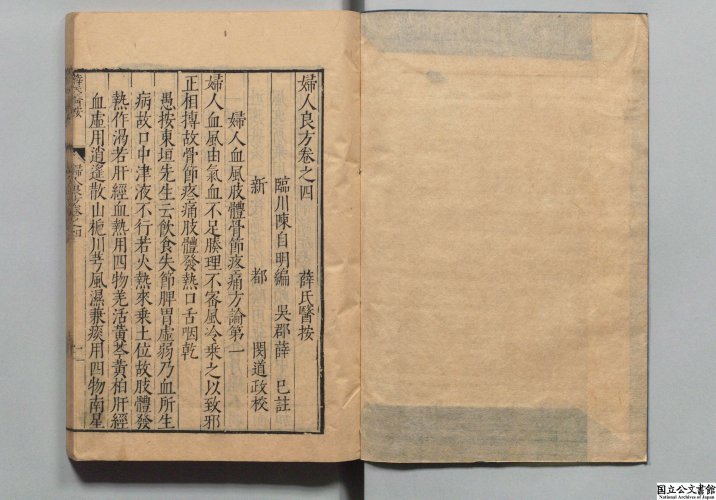 婦人良方卷之四 薛氏醫按
臨川陳自明編 吳郡薛 已註
新 都 閔道政校
婦人血風肢體骨節疼痛方論第一
婦人血風由氣血不足腠理不宻風冷乗之以致邪
正相搏故骨節疼痛肢體發熱口舌咽乾
愚按東垣先生云飲食失節脾胃虛弱乃血所生
病故口中津液不行若火熱來乗土位故肢體發
熱作渴若肝經血熱用四物羌活黃芩黃柏肝經
血虛用逍遙散山梔川芎風濕兼痰用四物南星
婦人良方卷之四
一
国立公文書館
National Archives of Japan